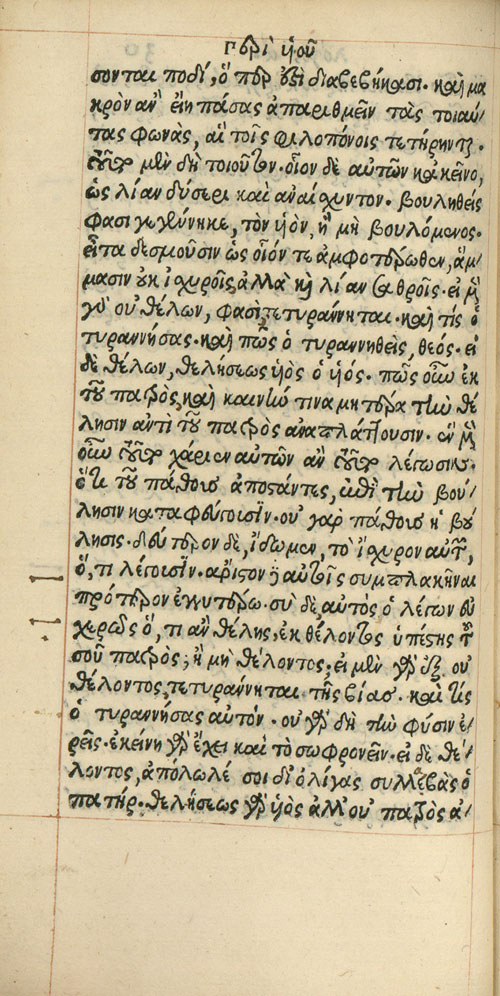 περὶ ὑιοῦ
σονται ποδί, ὅ περ ἔτι διαβεβήκασι. καὶ μα
κρὸν ἂν εἴη πάσας ἀπαριθμεῖν τὰς τοιαύ/
τας φωνὰς, αἳ τοῖς φιλοπόνοις τετήρηνται.
τοῦτο μὲν δὴ τοιοῦτον. οἷον δὲ αὐτῶν κἀκεῖνο,
ὡς λίαν δύσερι καὶ ἀναίσχυντον. βουληθείς
φασι γεγέννηκε, τὸν ὑιὸν, ἢ μὴ βουλόμενος.
εἶτα δεσμοῦσιν ὡς οἷόν τε ἀμφοτέρωθεν, ἅμ/
μασιν οὐκ ἰσχυροῖς, ἀλλὰ καὶ λίαν σαθροῖς. εἰ μὲν
γὰρ οὐ θέλων, φασὶ, τετυράννηται. καὶ τίς ὁ
τυραννήσας. καὶ πῶς ὁ τυραννηθεὶς, θεός. εἰ
δὲ θέλων, θελήσεως ὑιὸς ὁ ὑιός. πῶς οὖν ἐκ
τοῦ πατρὸς, καὶ καινήν τινα μητέρα τὴν θέ
λησιν ἀντὶ τοῦ πατρὸς ἀναπλάττουσιν. ἓν μὲν
οὖν τοῦτο χάριεν αὐτῶν ἂν τοῦτο λέγωσιν.
ὅτι τοῦ πάθους ἀποστάντες, ἐπὶ τὴν βού/
λησιν καταφεύγουσιν. οὐ γὰρ πάθους ἡ βού
λησις. δεύτερον δὲ, ἴδωμεν, τὸ ἰσχυρὸν αὐτῶν,
ὅ, τι λέγουσιν. ἄριστον δὲ αὐτοῖς συμπλακῆναι
πρότερον ἐγγυτέρω. σὺ δὲ, αὐτὸς ὁ λέγων εὐ
χερῶς ὅ, τι ἂν θέλῃς, ἐκ θέλοντος ὑπέστης τοῦ
σοῦ πατρὸς; ἢ μὴ θέλοντος. εἰ μὲν γὰρ ἐξ οὐ
θέλοντος, τετυράννηται. τῆς βίας. καὶ τίς
ὁ τυραννήσας αὐτόν. οὐ γὰρ δὴ τὴν φύσιν ἐ/
ρεῖς. ἐκείνη γὰρ ἔχει καὶ τὸ σωφρονεῖν. εἰ δὲ θέ/
λοντος, ἀπόλωλέ σοι δι' ὀλίγας συλλαβὰς ὁ
πατήρ. θελήσεως γὰρ ὑιὸς ἀλλ' οὐ πατρὸς ἀ/